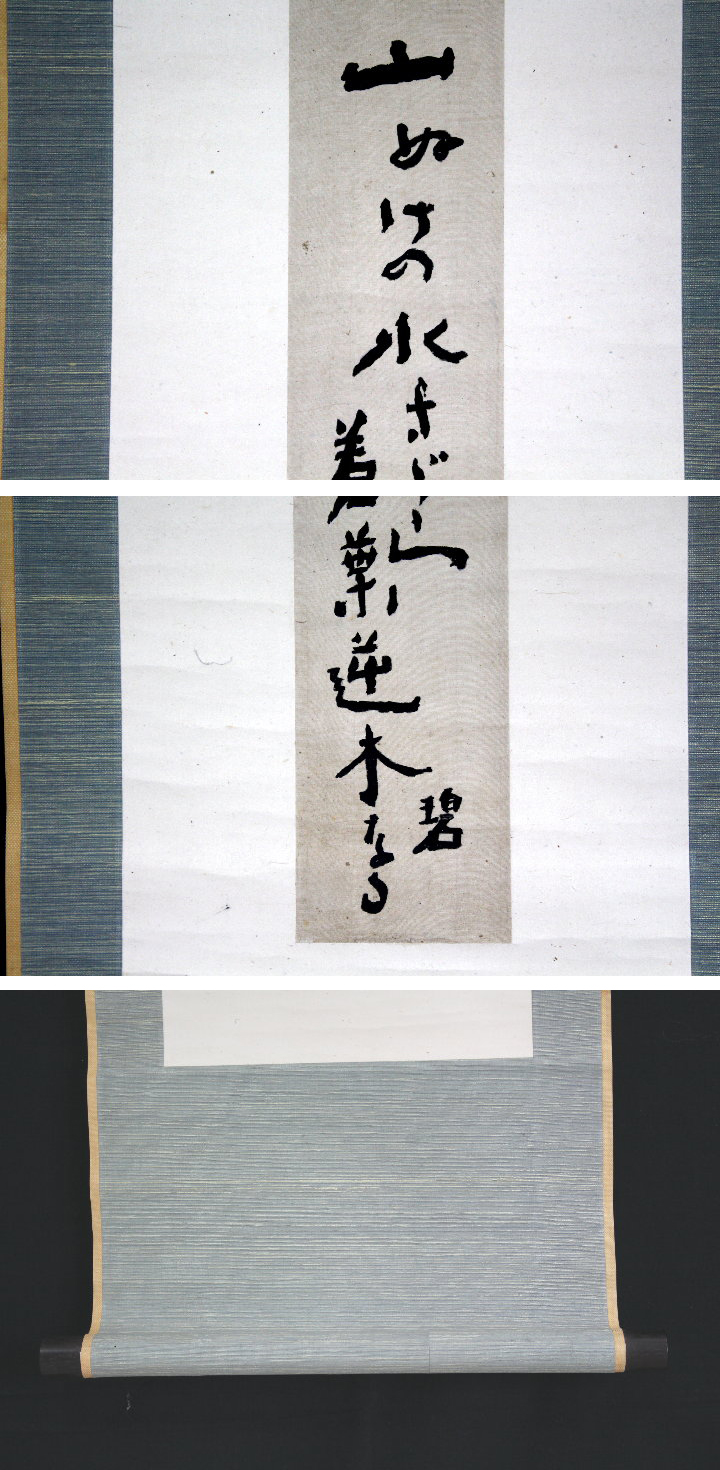 山ぬけの水さびし
若葉逆木なる
碧